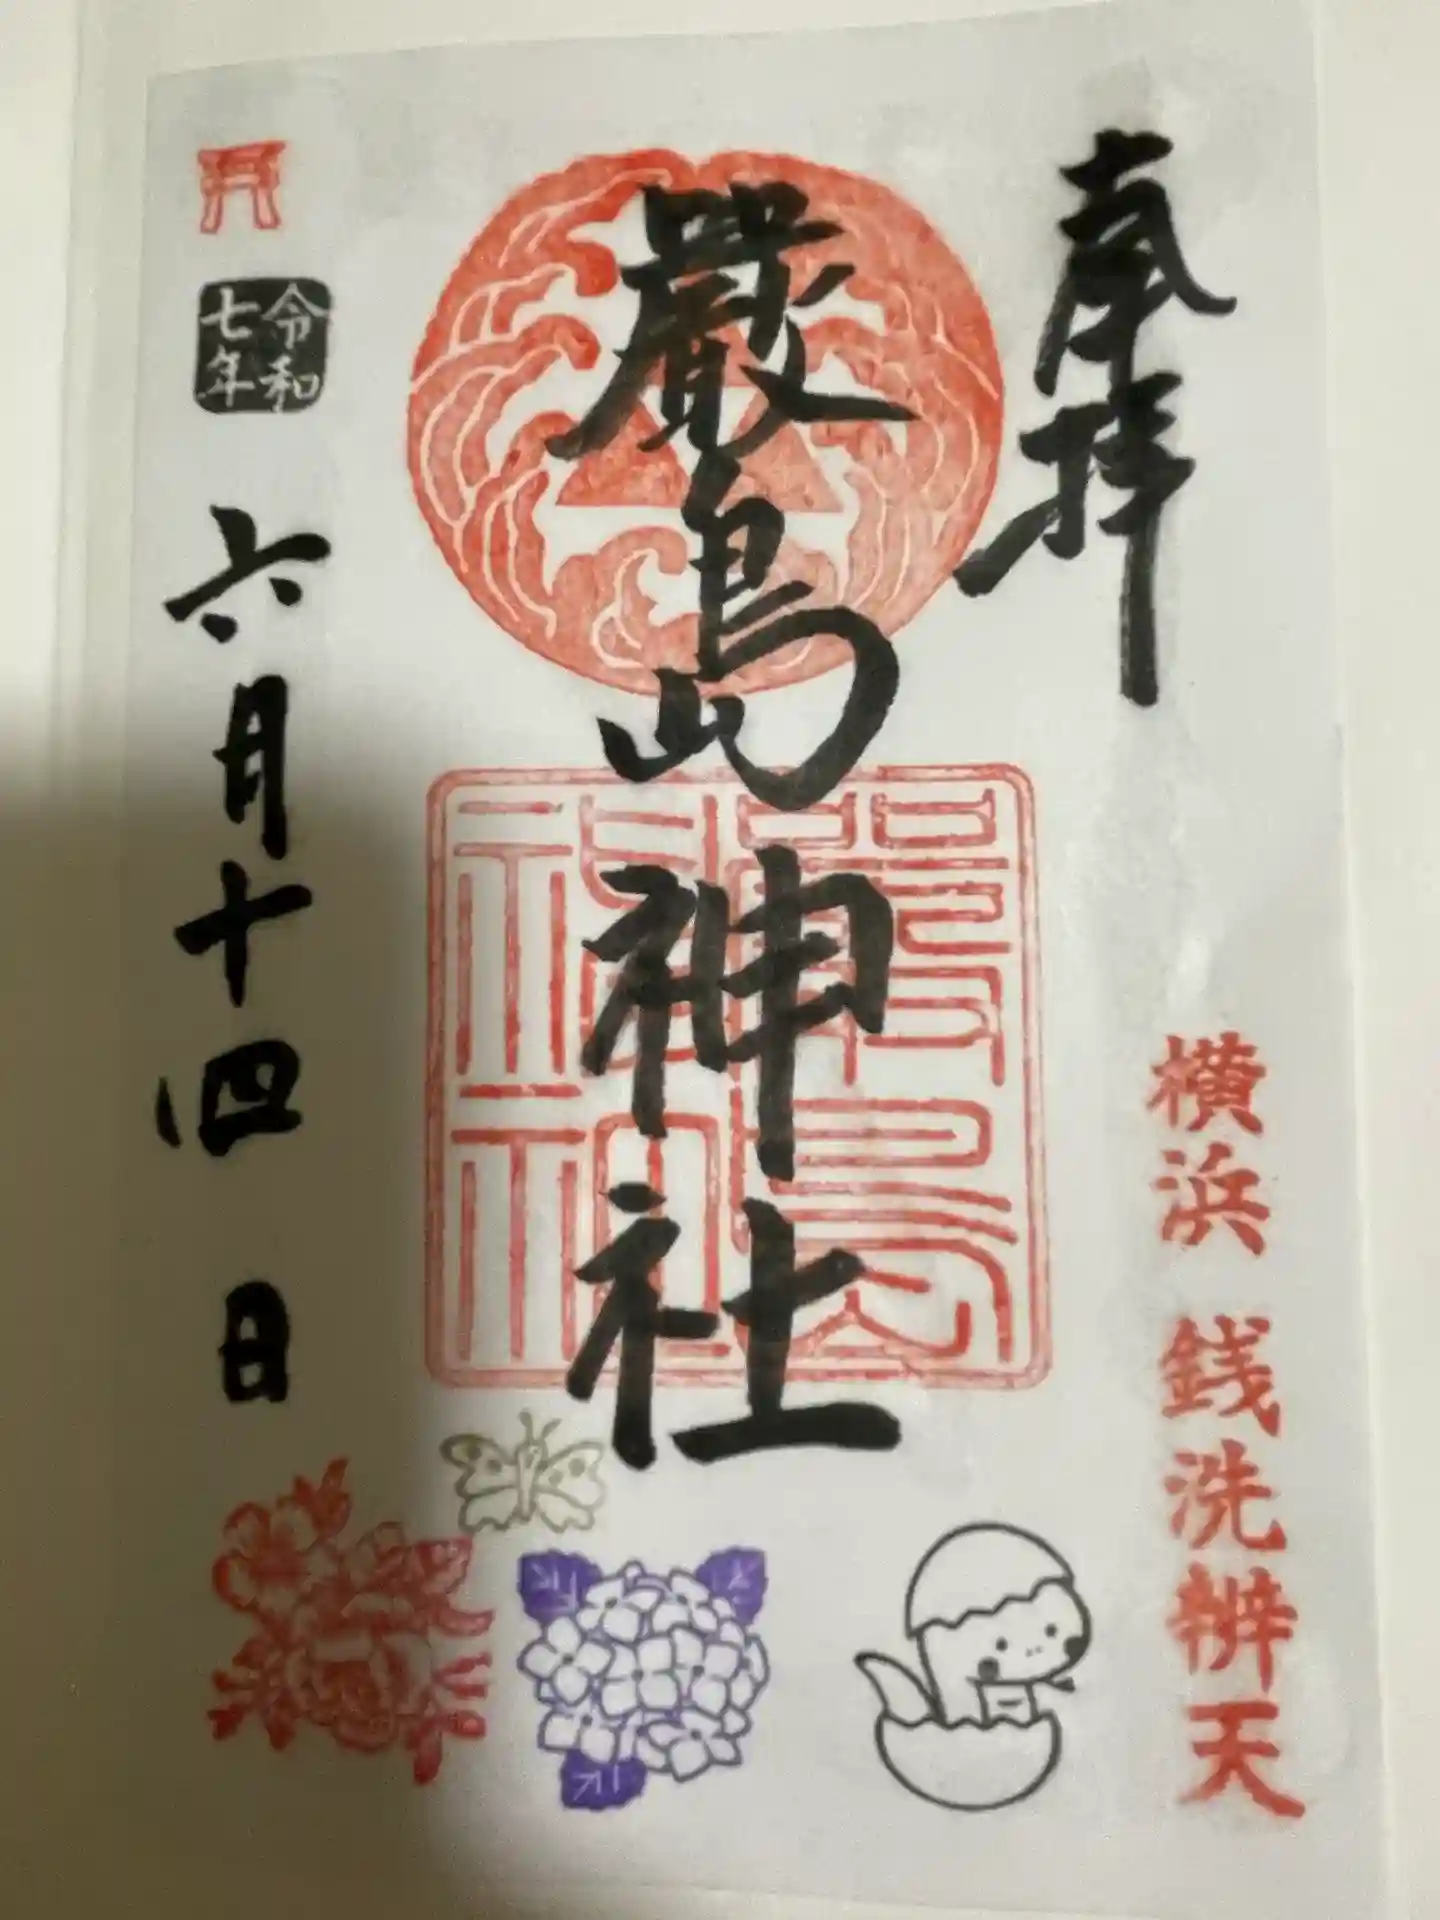 奉拝
横浜 銭洗辨天
嚴島神社
嚴島
神社
令和
七年
六月十四日